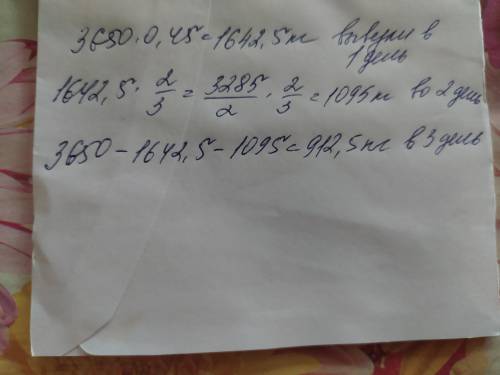 3650 · 0,45 = 1642,5 кг вывезли в
1 день
1642,5 · 2/3 = 3285/2 · 2/3 = 1095 кг во 2 день
3650 - 1642,5 - 1095 = 912,5 кг в 3 день